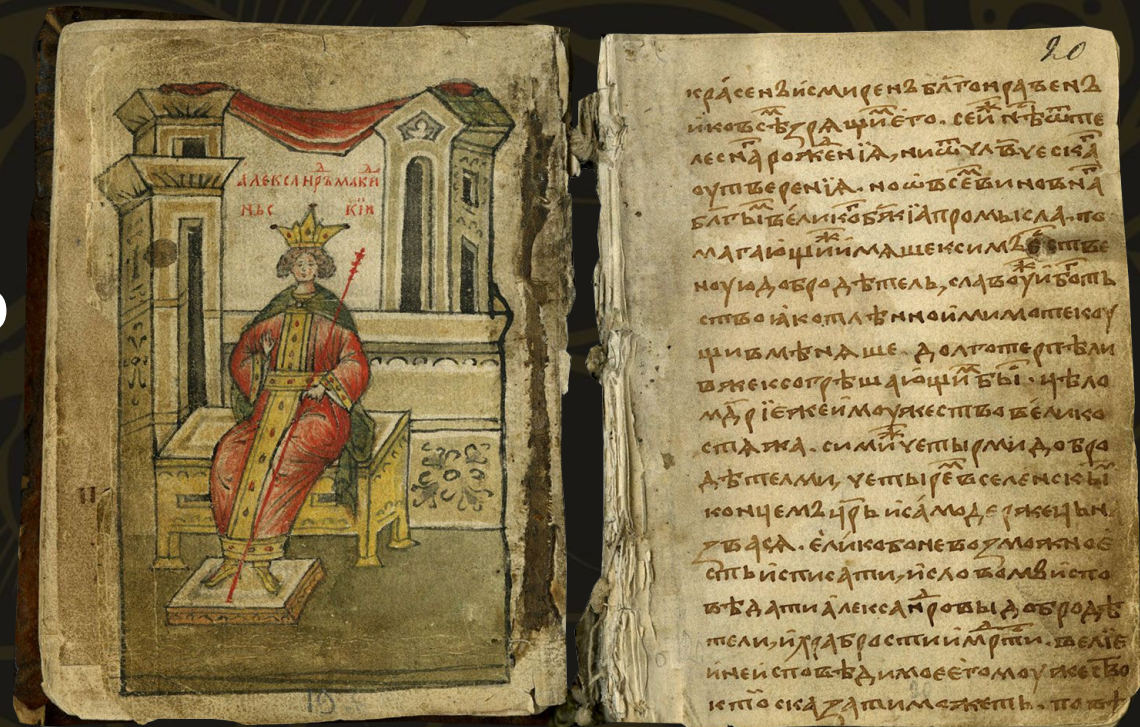 АЛЕКСАНРЪ МАКИ
НЬС КІИ
20
красенъ и смиренъ бл҃гонравенъ
и ко всѣм зрящи͏м его. сей не ѿ те
лесна роженїя, ни ѿ чл҃вческа
оутверенїя. но ѿ всѣм виновна
бл҃гы велико бж҃їа промысла. по
магающи и
ную добродѣтель, славоу и бога͏т
ство яко тлѣнно и мимотекоу
щи вмѣняше. долготерпѣли
вже к согрѣшающи͏м бы. цѣло
мдрїе же и моужество велико
стяжа. сими четырми добро
дѣтелми, четыре͏м вселенскы
концемъ цр҃ь и самодержець н
звася. елико бо невозможно е
сть исписати, и словомъ испо
вѣдати александровы добродѣ
тели, и храбрости и мр҃ти. велїе
и неисповѣдимое его моужество
кто сказати можеть. по